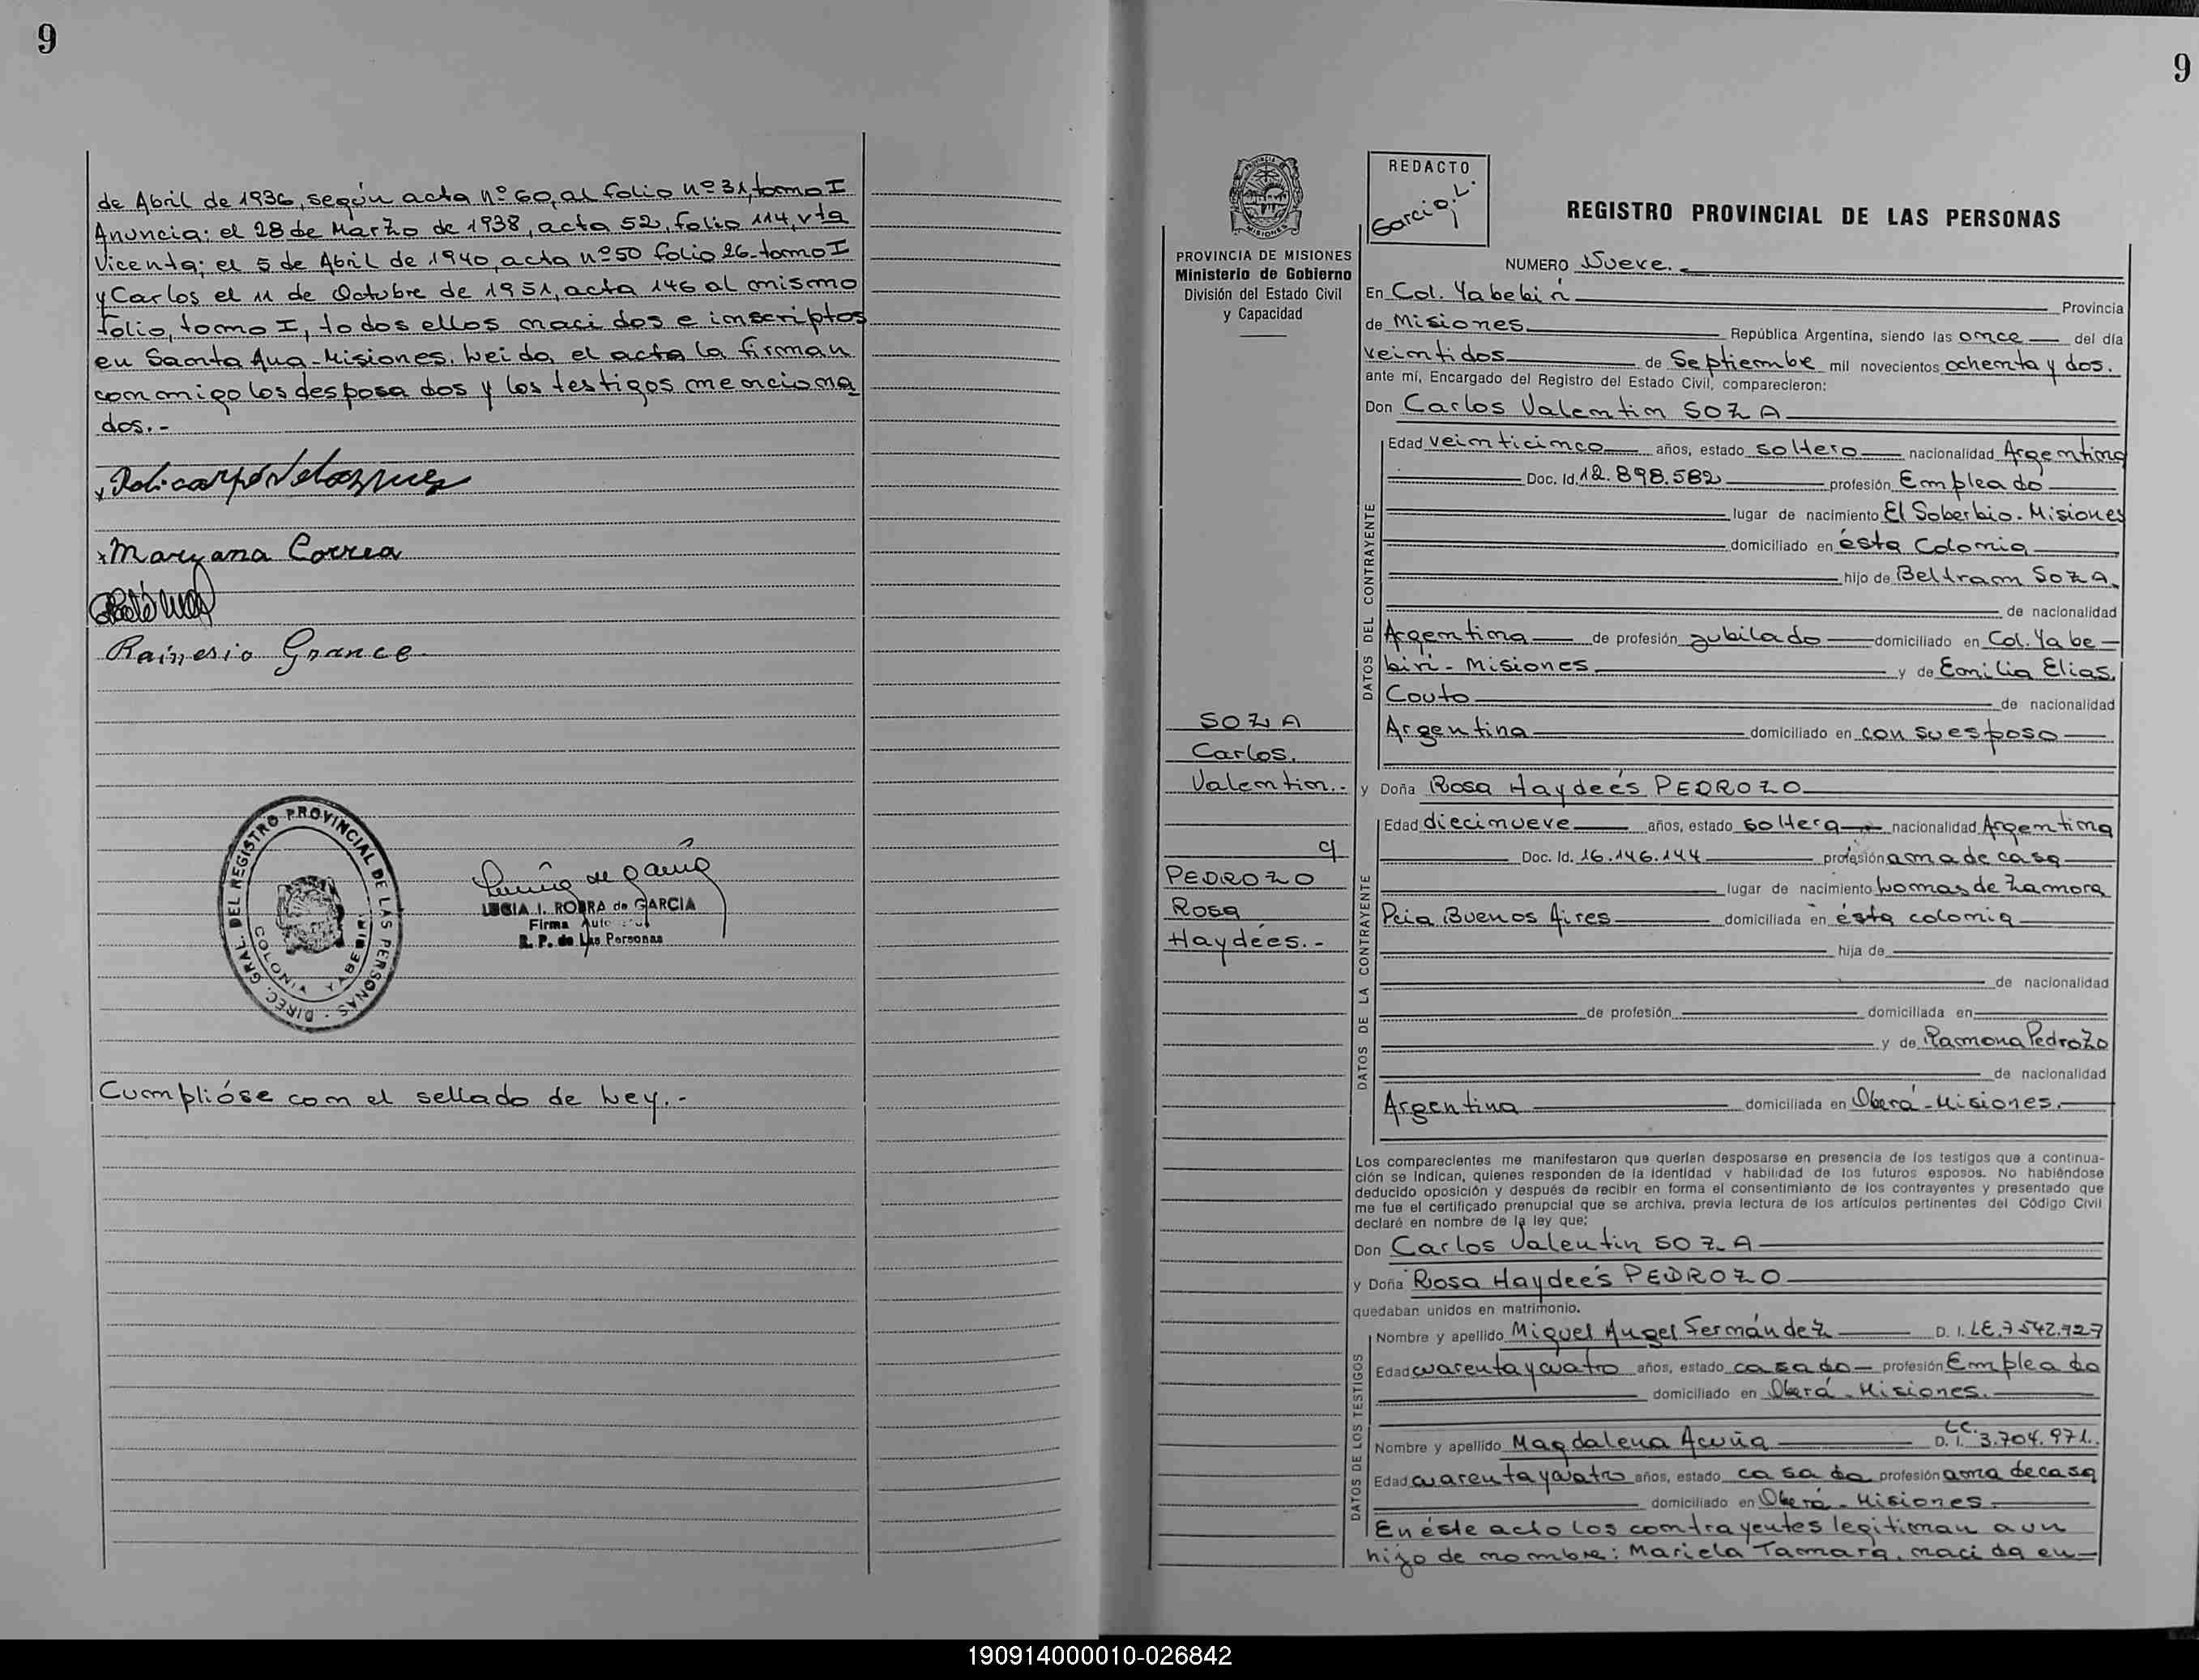 9
de Abril de 1936, según acta nº 60, al folio nº 31, tomo I
Anuncia; el 28 de Marzo de 1938, acta 52, folio 114, vta
Vicenta; el 5 de Abril de 1940, acta nº 50 folio 26-tomo I
y Carlos el 11 de Octubre de 1951, acta 146 al mismo
folio, tomo I, todos ellos nacidos e inscriptos
en Santa Ana-Misiones. Leida, el acta la firman
conmigo los desposados y los testigos menciona
dos.-
Policarpo Velazquez
x Maryana Correa
Rainerio Grance
DIREC. GRAL. DEL REGISTRO PROVINCIAL DE LAS PERSONAS
COLONIA YABEBIRI
LUCIA I. ROBRA de GARCIA
Firma
R. P. de Las Personas
Cumplióse con el sellado de Ley.-
9
PROVINCIA DE MISIONES
Ministerio de Gobierno
División del Estado Civil
y Capacidad
REDACTO
Garcia, L. I
REGISTRO PROVINCIAL DE LAS PERSONAS
NUMERO Nueve.
En Col. Yabebiri Provincia
de Misiones República Argentina, siendo las once del día
veintidos de Septiembre mil novecientos ochenta y dos.
ante mí, Encargado del Registro del Estado Civil, comparecieron:
Don Carlos Valentin SOZA
DATOS DEL CONTRAYENTE
Edad veinticinco años, estado soltero nacionalidad Argentina
Doc. Id. 12.898.582 profesión Empleado
lugar de nacimiento El Soberbio-Misiones
domiciliado en ésta Colonia
hijo de Beltram SOZA
de nacionalidad
Argentina de profesión jubilado domiciliado en Col. Yabe-
biri-Misiones y de Emilia Elias
Couto de nacionalidad
Argentina domiciliado en con su esposo
SOZA
Carlos
Valentin.-
y Doña Rosa Haydeés PEDROZO
c/
PEDROZO
Rosa
Haydées.-
DATOS DE LA CONTRAYENTE
Edad diecinueve años, estado soltera nacionalidad Argentina
Doc. Id. 16.146.144 profesión ama de casa
lugar de nacimiento Lomas de Zamora
Pcia. Buenos Aires domiciliada en ésta colonia
hija de
de nacionalidad
de profesión domiciliada en
y de Ramona Pedrozo
de nacionalidad
Argentina domiciliada en Oberá-Misiones.
Los comparecientes me manifestaron que querían desposarse en presencia de los testigos que a continua-
ción se indican, quienes responden de la identidad y habilidad de los futuros esposos. No habiéndose
deducido oposición y después de recibir en forma el consentimiento de los contrayentes y presentado que
me fue el certificado prenupcial que se archiva, previa lectura de los artículos pertinentes del Código Civil
declaré en nombre de la ley que:
Don Carlos Valentin SOZA
y Doña Rosa Haydeés PEDROZO
quedaban unidos en matrimonio.
DATOS DE LOS TESTIGOS
Nombre y apellido Miguel Angel Fernández D. I. LE. 7.542.727
Edad cuarenta y cuatro años, estado casado profesión Empleado
domiciliado en Oberá-Misiones.
Nombre y apellido Magdalena Acuña D. I. LC. 3.704.971.
Edad cuarenta y cuatro años, estado casada profesión ama de casa
domiciliado en Oberá-Misiones
En éste acto los contrayentes legitiman a un
hijo de nombre: Mariela Tamara, nacida en-
190914000010-026842